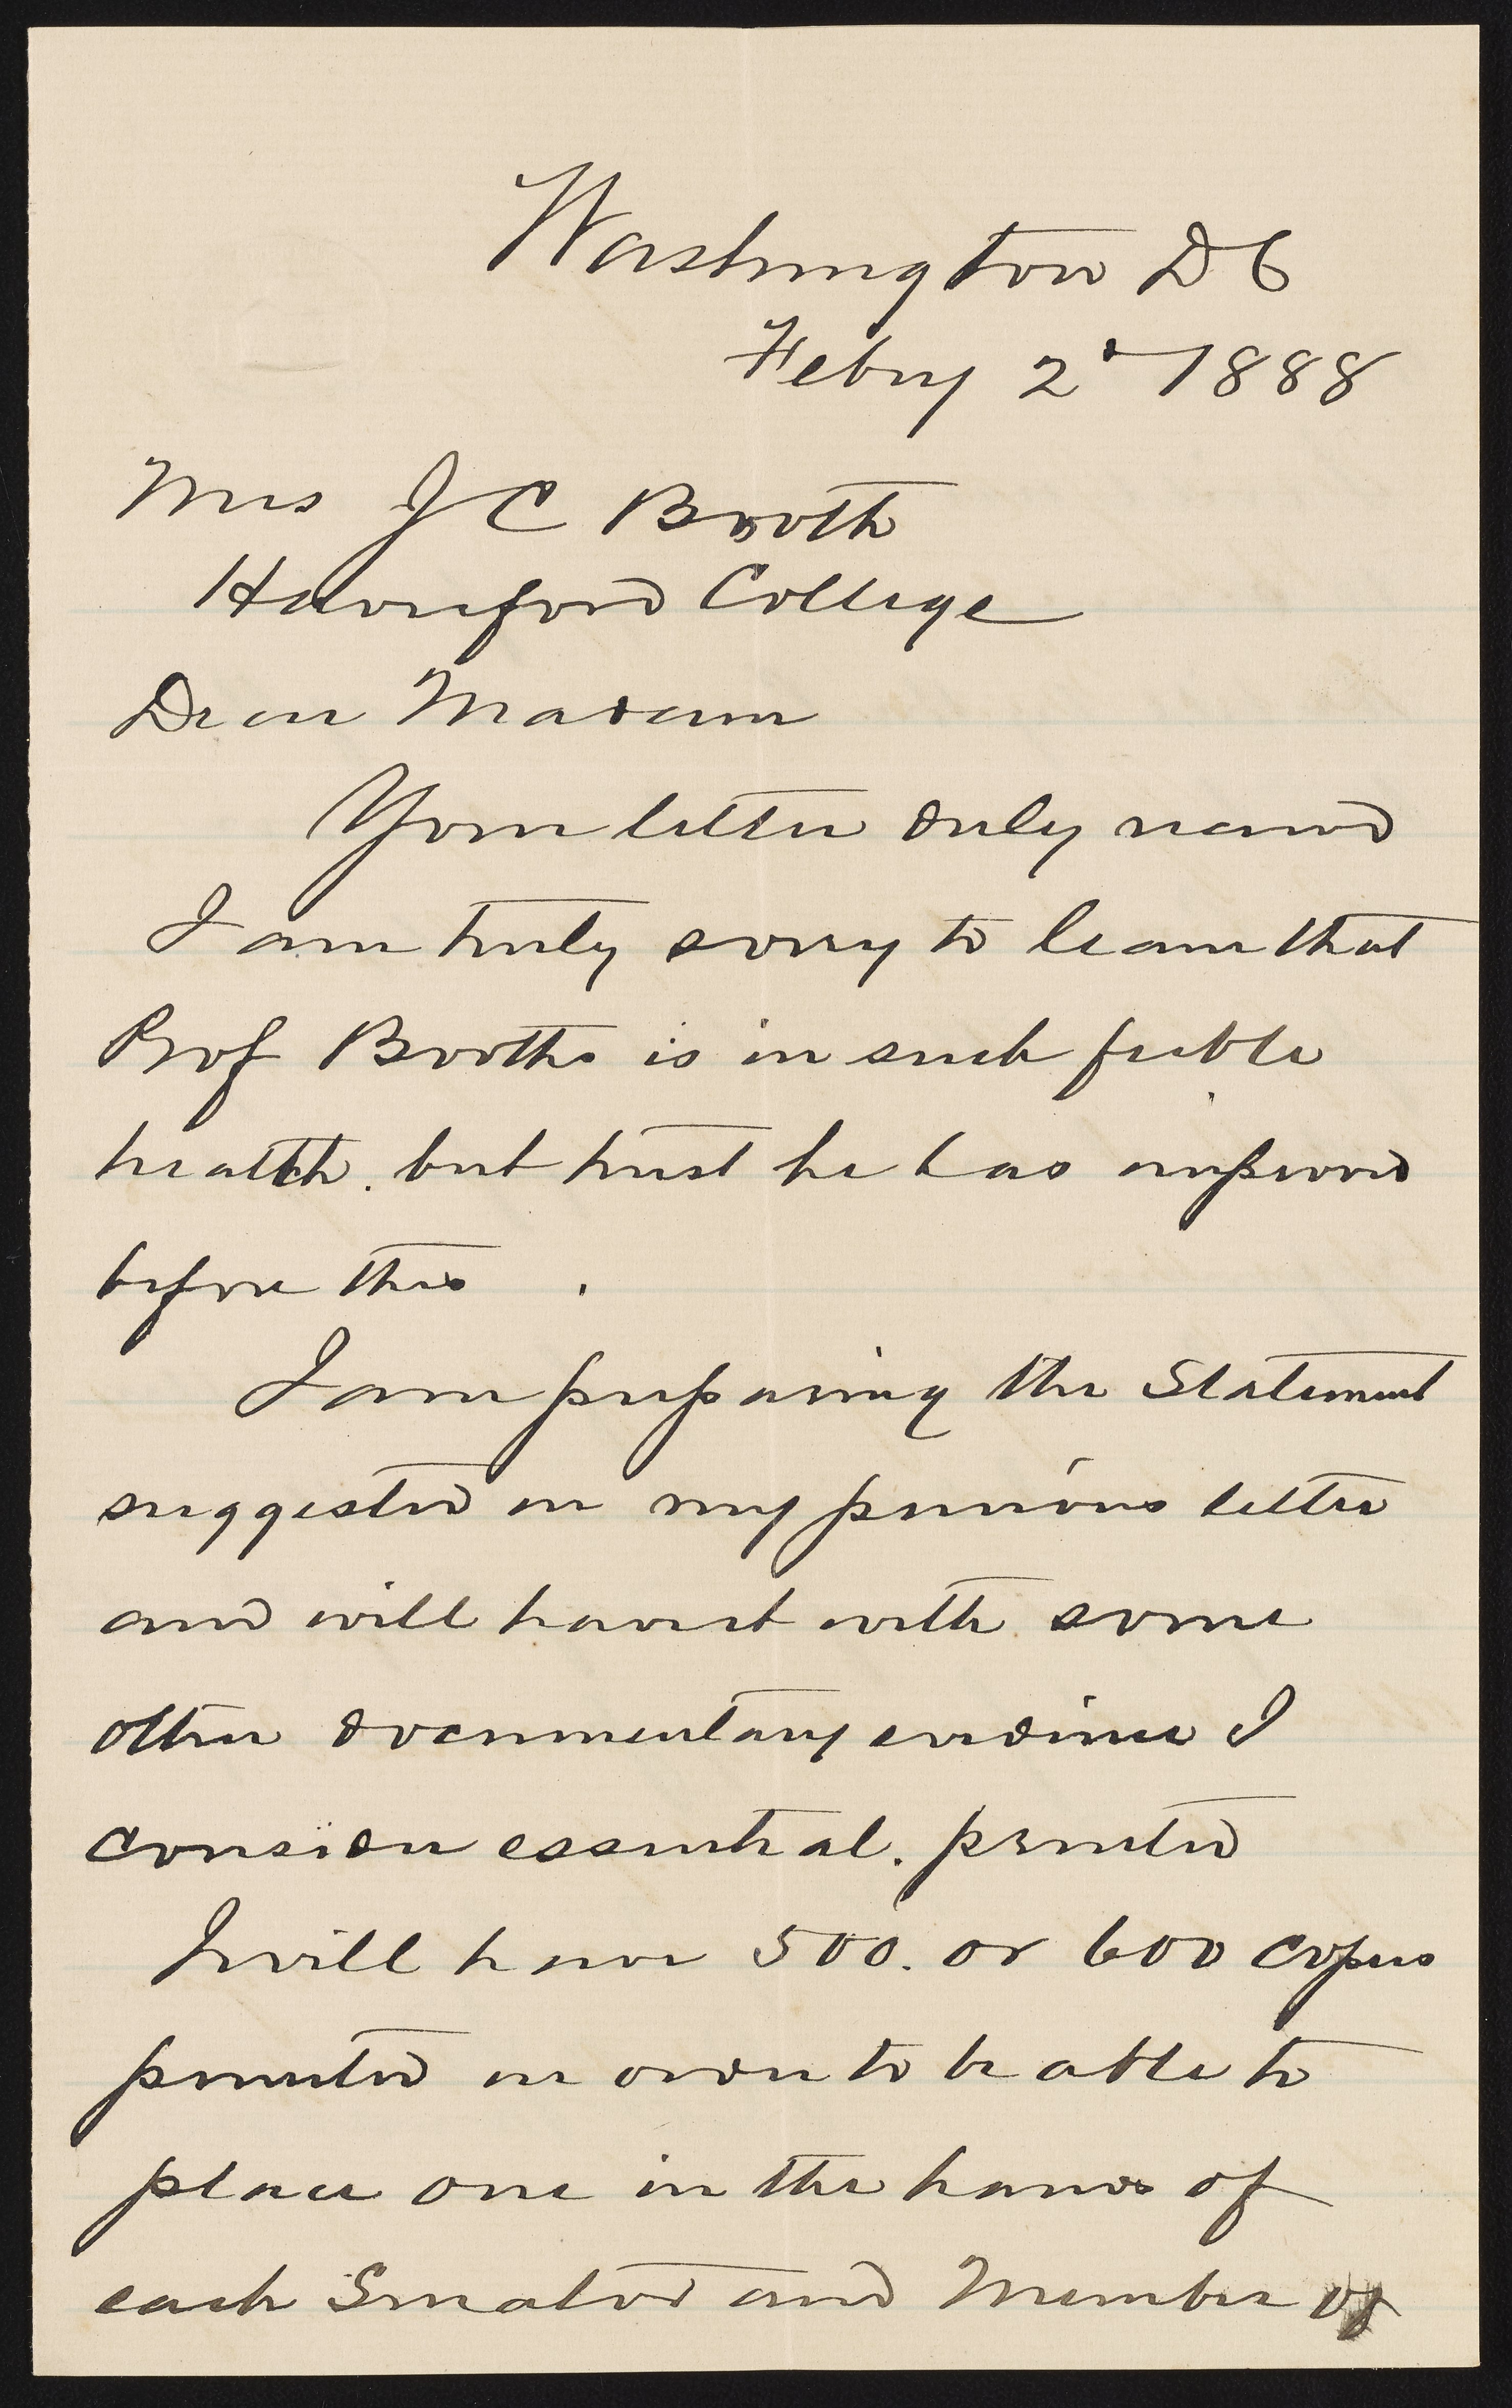 Washington DC
Febry 2d 1888
Mrs J C Booth
Haverford College
Dear Madam
Your letter duly recived
I am truly sorry to learn that
Prof Booths is in such feeble
health. but trust he has improved
before this .
I am preparing the Statement
suggested in my previous letter
and will have it with some
other documentary evidince I
consider essential. printed
I will have 500. or 600 copies
printed in order to be able to
place one in the hands of
each Senator and Member of